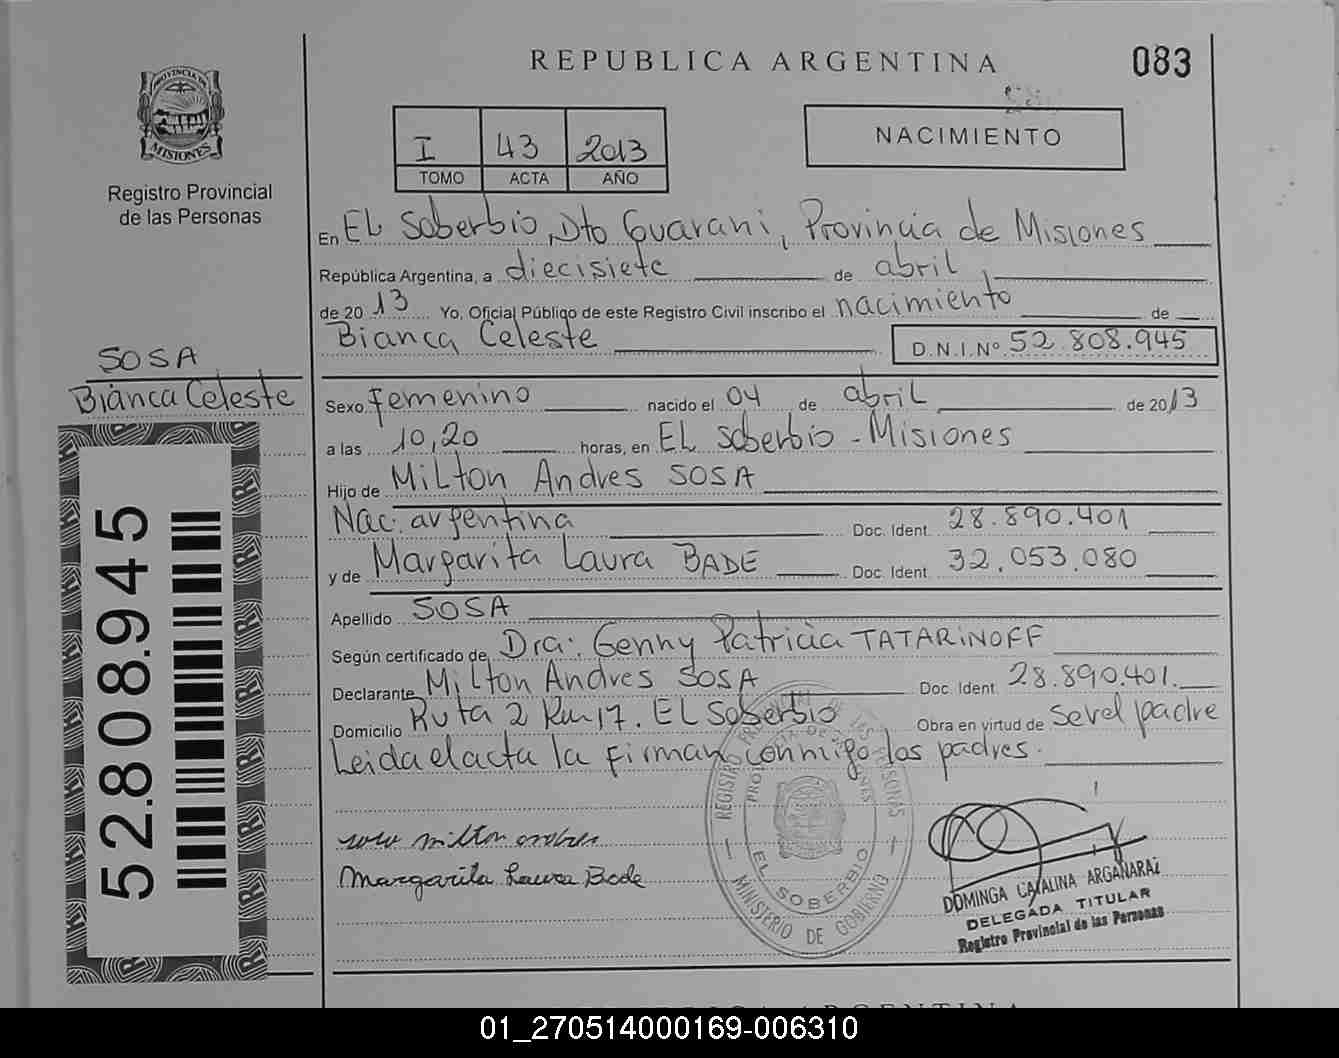 REPUBLICA ARGENTINA
083
PROVINCIA DE
MISIONES
Registro Provincial
de las Personas
I 43 2013
TOMO ACTA AÑO
NACIMIENTO
En EL Soberbio, Dto Guarani, Provincia de Misiones
República Argentina, a diecisiete de abril
de 2013 Yo, Oficial Público de este Registro Civil inscribo el nacimiento de
Bianca Celeste D.N.I.Nº 52.808.945
SOSA
Bianca Celeste
Sexo femenino nacido el 04 de abril de 2013
a las 10,20 horas, en EL Soberbio - Misiones
Hijo de Milton Andres SOSA
Nac: argentina Doc. Ident. 28.890.401
y de Margarita Laura BADE Doc. Ident. 32.053.080
Apellido SOSA
Según certificado de Dra: Genny Patricia TATARINOFF
Declarante Milton Andres SOSA Doc. Ident. 28.890.401.
Domicilio Ruta 2 Km 17. EL Soberbio Obra en virtud de Ser el padre
Leida el acta la firman conmigo los padres.
52.808.945
milton andres
Margarita Laura Bade
EL SOBERBIO
MINISTERIO DE GOBIERNO
DOMINGA CATALINA ARGAÑARAZ
DELEGADA TITULAR
Registro Provincial de las Personas
01_270514000169-006310